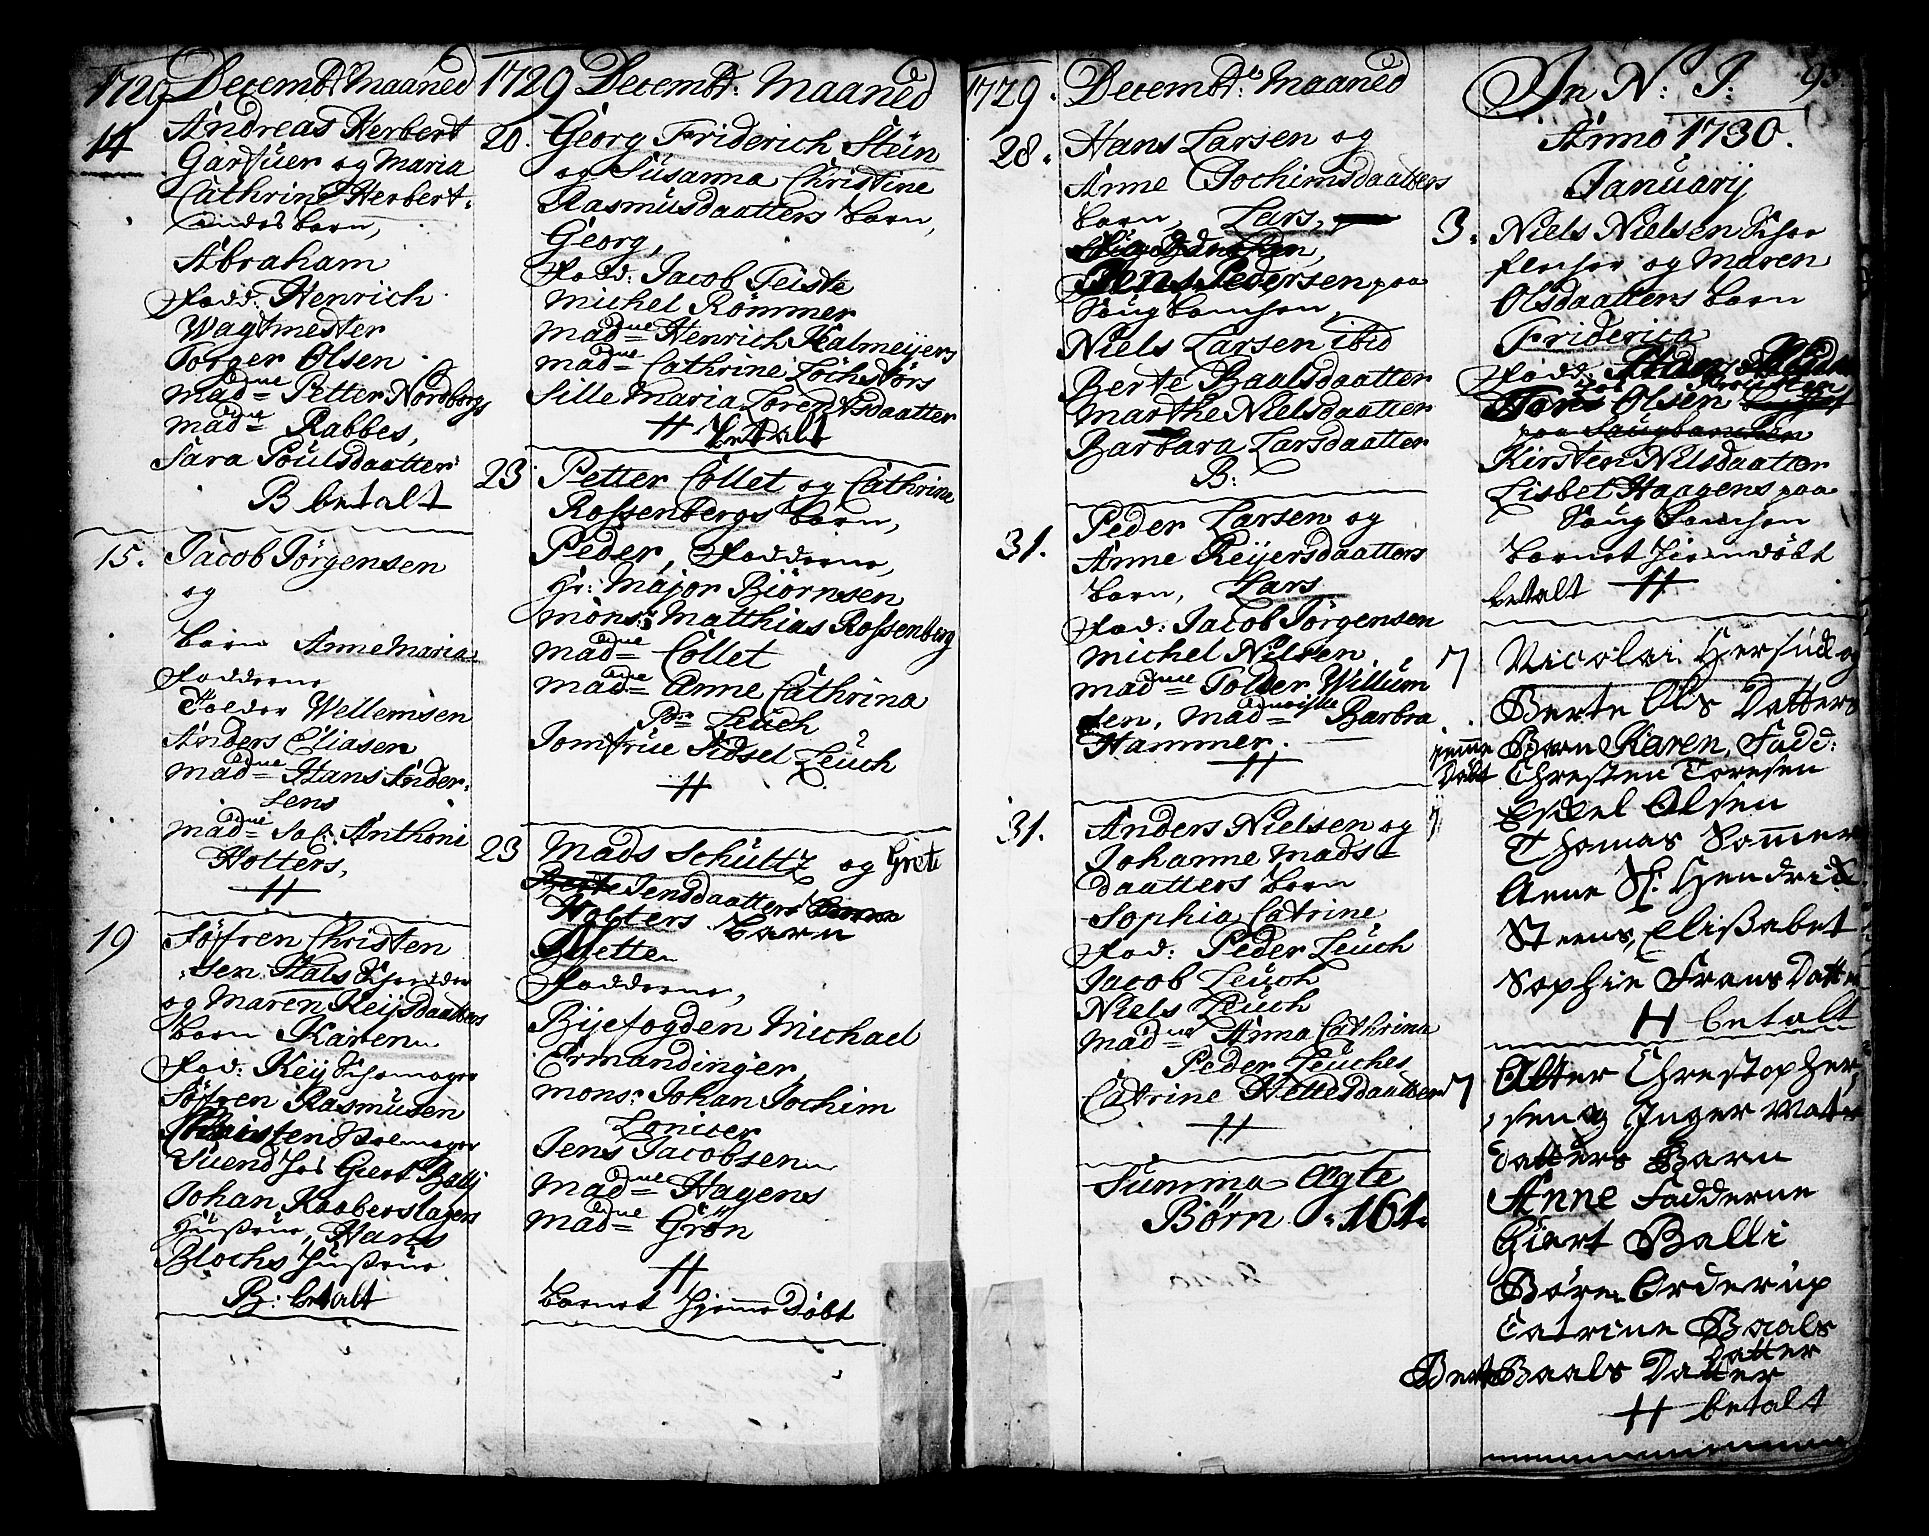 1729 Decembr: Maaned
14 Andreas Herbert
Garfuer og Maria
Cathrine Herbert
Barn,
Abraham
Fadd: Henrich
Wagtmester
Torger Olsen
Mad^ue Petter Nordborgs
Mad^ue Rabbes,
Sara Poulsdaatter
B betalt
15. Jacob Jörgensen
og
Barn Anne Maria
Fadderne
Tolder Wellemsen
Anders Eliasen
Mad^ue Hans Ander-
sens
Mad^ue Sal: Anthoni
Holters,
H
19 Söfren Christen
sen Stals
og Maren Keijsdaatters
Barn Karen
Fad: Keij
Söfren Rasmusen
Christen
Suend hos Giert Balli
Johan Kaaberslagers
Hustrue, Hans
Blochs Hustrue
B: betalt
1729 Decembr: Maaned
20. Georg Friderich Stein
og Susanna Christine
Rasmusdaatters Barn,
Georg,
Fadd: Jacob Teiste
Michel Römmer
Mad^ue Henrich Kalmeijers
Mad^ue Cathrine Lochstörs
Sille Maria Lorentzdaatter
H betalt
23 Petter Collet og Cathrina
Rossenbergs Barn,
Peder, Fadderne,
Hr: Major Biörnsen
Mons: Matthias Rossenberg
Mad^ue Collet
Mad^ue Anne Cathrina
Pr Leuch
Jomfrue Sidsel Leuch
H
23 Mads Schultz og Grete
Jensdaatters
Holters Barn
Mette
Fadderne,
Bijefogden Michael
Ermandinger,
Mons: Johan Jochim
Loniter
Jens Jacobsen
Mad^ue Hagens
Mad^ue Grön
H
Barnet Hjemme Döbt
1729. Decembr: Maaned
28. Hans Larsen og
Anne Jochimsdaatters
Barn, Lars,
Jens Pedersen paa
Saugbanchen,
Niels Larsen ibid
Berte Baalsdaatter
Marthe Nielsdaatter
Barbara Larsdaatter
B:
31. Peder Larsen og
Anne Reijersdaatters
Barn, Lars
Fad: Jacob Törgensen
Michel Nilsen
Mad^ue Tolder Willum
sen, Mad Barbra
Hammer.
H
31. Anders Nielsen og
Johanne Mads-
daatters Barn
Sophia Catrine
Fad: Peder Leuch
Jacob Leuch
Niels Leuch
Mad^ue Anna Cathrina
Peder Leuches
Catrine Hellesdaatter
H
Summa Ægte
Börn 161.
In N: J: 93.
Anno 1730.
Januarij
3. Niels Nielsen
og Maren
Olsdaatters Barn
Friderica
Fadd:
Olsen
paa Saugbanchen
Kirsten Nilsdaatter
Lisbet Haagens paa
Saug Banchen
Barnet Hiemdöbt
betalt H
7 Nicolai Hersud og
Berte Ols Datters
hjemme Döbt Barn Karen, Fadd:
Christen Toresen
Eskel Olsen
Thomas Sommer
Anne Sl: Hendrik
Steens, Elisabet
Sophie Frans Datter
H betalt
7 Alter Christopher
sen og Inger Mats
Datters Barn
Anne Fadderne
Giert Balli
Börre Orderup
Catrine Baals
Datter
Berte Baals Datter
H betalt